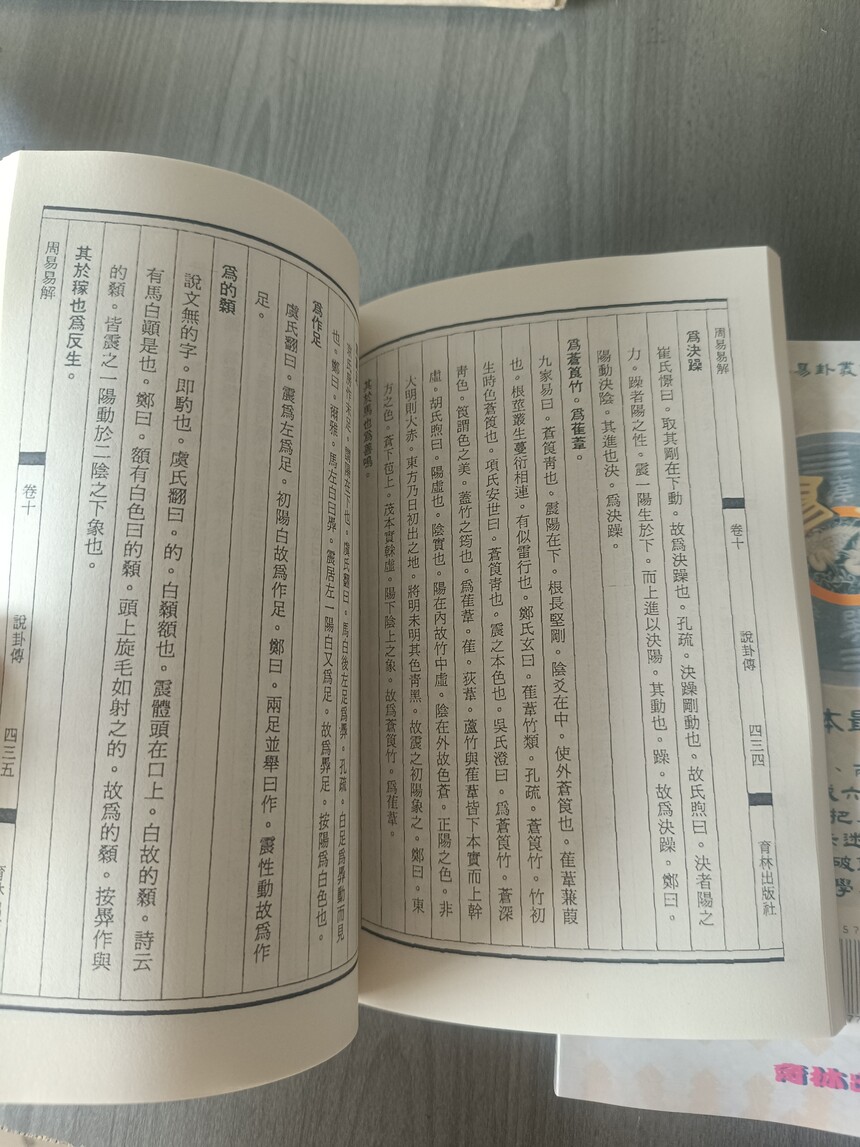 周易易解
卷十
說卦傳
四三四
育林出版社
爲決躁
崔氏憬曰。取其剛在下動。故爲決躁也。孔疏。決躁剛動也。故氏煦曰。決者陽之
力。躁者陽之性。震一陽生於下。而上進以決陽。其動也。躁。故爲決躁。鄭曰。
陽動決陰。其進也決。爲決躁。
爲蒼筤竹。爲萑葦。
九家易曰。蒼筤靑也。震陽在下。根長堅剛。陰爻在中。使外蒼筤也。萑葦蒹葭
也。根莖叢生蔓衍相連。有似雷行也。鄭氏玄曰。萑葦竹類。孔疏。蒼筤竹。竹初
生時色蒼筤也。項氏安世曰。蒼筤靑也。震之本色也。吳氏澄曰。爲蒼筤竹。蒼深
靑色。筤謂色之美。蓋竹之筠也。爲萑葦。萑。荻葦。蘆竹與萑葦皆下本實而上幹
虛。胡氏煦曰。陽虛也。陰實也。陽在內故竹中虛。陰在外故色蒼。正陽之色。非
大明則大赤。東方乃日初出之地。將明未明其色靑黑。故震之初陽象之。鄭曰。東
方之色。蒼下苞上。茂本實榦虛。陽下陰上之象。故爲蒼筤竹。爲萑葦。
其於馬也爲善鳴。
也。鄭曰。爾雅。馬左白曰馵。震居左一陽白又爲足。故爲馵足。按陽爲白色也。
爲作足
虞氏翻曰。震爲左爲足。初陽白故爲作足。鄭曰。兩足並舉曰作。震性動故爲作
足。
爲的顙
說文無的字。即馰也。虞氏翻曰。的。白顙額也。震體頭在口上。白故的顙。詩云
有馬白顚是也。鄭曰。額有白色曰的顙。頭上旋毛如射之的。故爲的顙。按馵作與
的顙。皆震之一陽動於二陰之下象也。
其於稼也爲反生。
周易易解
卷十
說卦傳
四三五